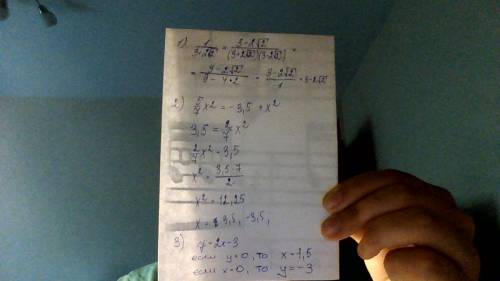 1) 1/(3+2√2) = (3-2√2)/((3+2√2)(3-2√2)) =
= (3-2√2)/(9-4•2) = (3-2√2)/1 = 3-2√2
2) 5/7 x² = -3,5 + x²
3,5 = 2/7 x²
2/7 x² = 3,5
x² = (3,5•7)/2
x² = 12,25
x = 3,5, -3,5,
3) y=2x-3
если y=0, то x=1,5
если x=0, то y=-3